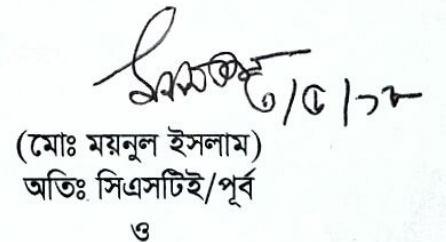 ৩/৫/১৮
(মোঃ ময়নুল ইসলাম)
অতিঃ সিএসটিই/পূর্ব
ও